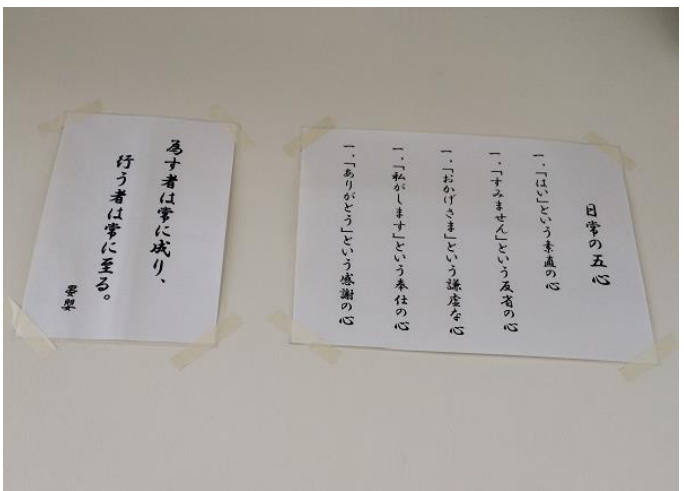 日常の五心
一.「はい」という素直の心
一.「すみません」という反省の心
一.「おかげさま」という謙虚な心
一.「私がします」という奉仕の心
一.「ありがとう」という感謝の心
為す者は常に成り、
行う者は常に至る。
晏嬰